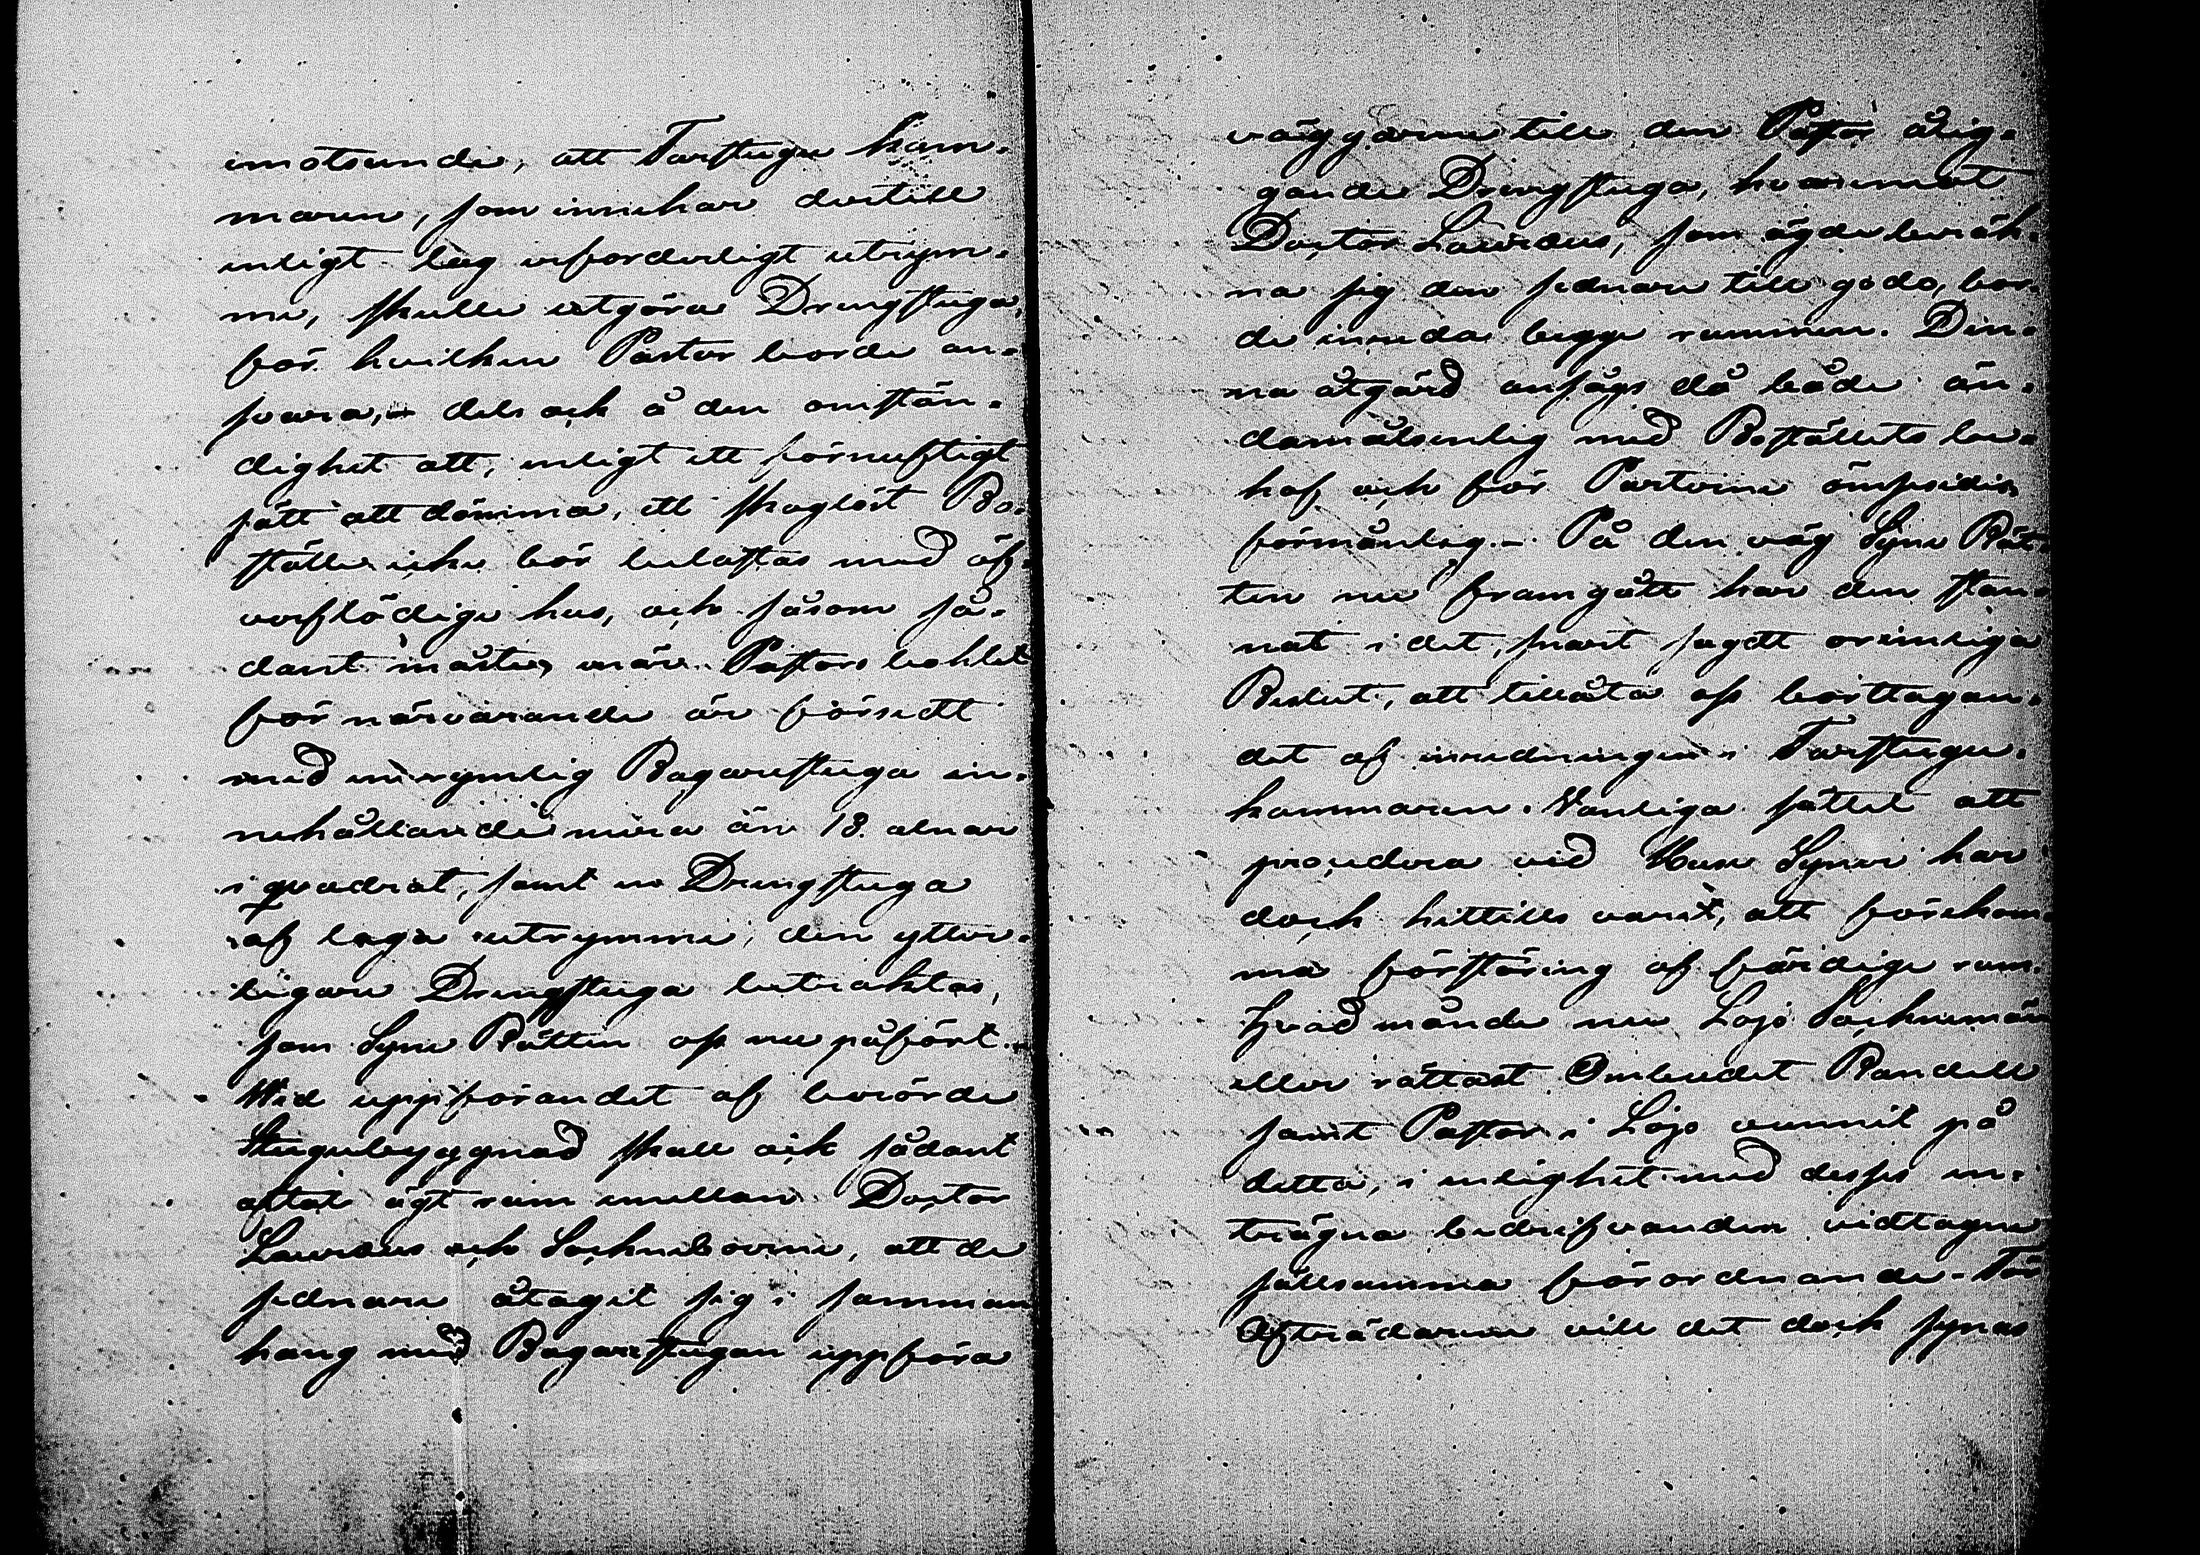 imotseende, att Farstugu kam-
maren, som innehar dertill
enligt lag erforderligt utrym-
me, skulle utgöra Drengstuga,
för hvilken Pastor borde an-
svara, dels ock å den omstän-
dighet att, enligt ett förnuftigt
sätt att dömma, ett skoglöst Bo-
ställe icke bör belastas med öf-
verflödige hus, och såsom så-
dant måste, när Pastors bohlet
för närvarande är försedt
med en rymlig Bagarestuga in-
nehållande mera än 18 alnar
i quadrat, samt en Drengstuga
af laga utrymme, den ytter-
ligare Drengstuga betraktas,
som Syne Rätten oss nu påfört.
Wid uppförandet af berörde
Stugubyggnad skall ock sådant
aftal ägt rum emellan Doctor
Laureus och Sockneboerne, att de
sednare åtagit sig i samman
hang med Bagarestugan uppföra
väggarne till den Pastor ålig-
gande Drengstuga, hvaremot
Doctor Laureus, som ägde beräk-
na sig den sednare till godo, bor-
de inreda begge rummen. Den-
na åtgärd ansågs då både än-
damålsenlig med Boställets be-
hof och för Parterne ömsesidigt
förmånlig. - På den väg Syne Rät-
ten nu framgått har den stan-
nat i det, snart sagdt orimliga
Beslut, att tillåta oss borttagan-
det af inredningen i Farstugu-
kammaren. Vanliga sättet att
procedera vid Huse Syner har
dock hittills varit, att förekom-
ma förstöring af färdige rum.
Hvad månde nu Lojo Socknemän
eller rättast Ombudet Randell
samt Pastor i Lojo vunnit på
detta, i enlighet med desses en-
trägna bedrifvanden vidtagne
sällsamma förordnande. - För
Afträdaren vill det dock synas